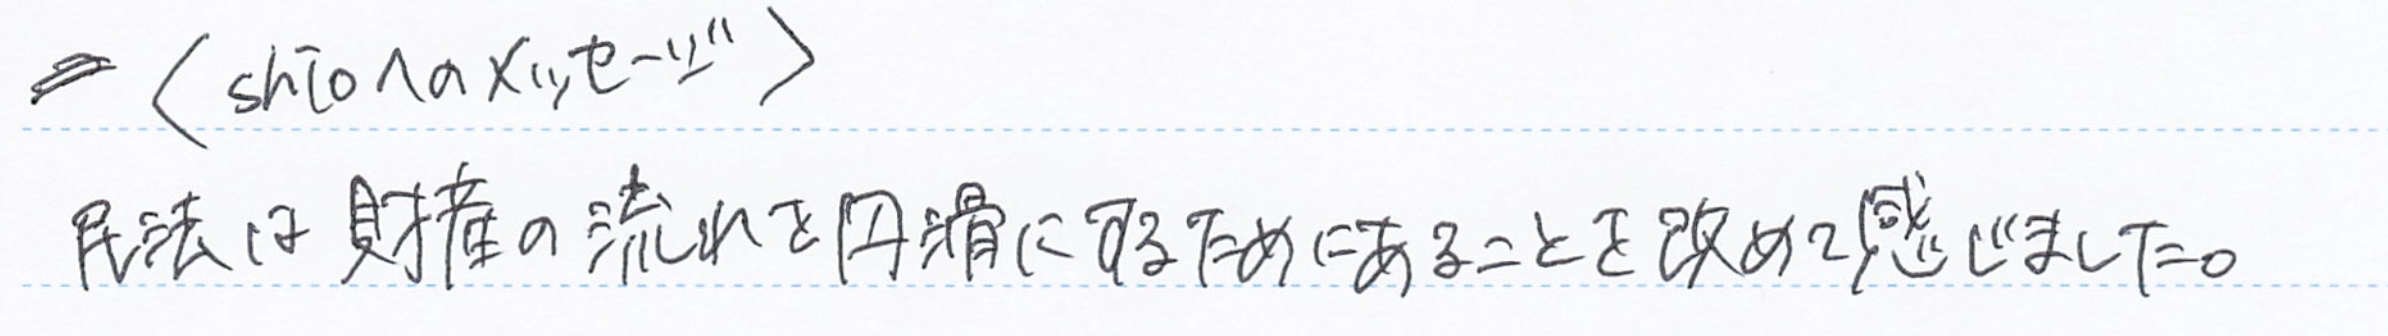 〈shioへのメッセージ〉
民法は財産の流れを円滑にするためにあることを改めて感じました。